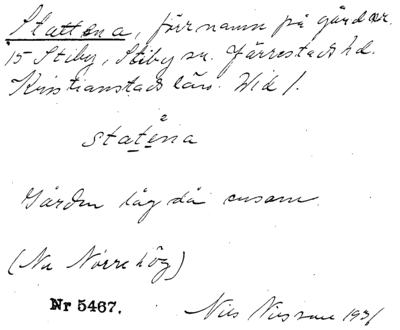 Stattena, förr namn på gård nr.
15 Stiby, Stiby sn. Järrestads hd.
Kristianstads län. Wid 1.
statena
Gården låg då ensam.
(Nu Norrehög)
Nr 5467.
Nils Nilsson 1931